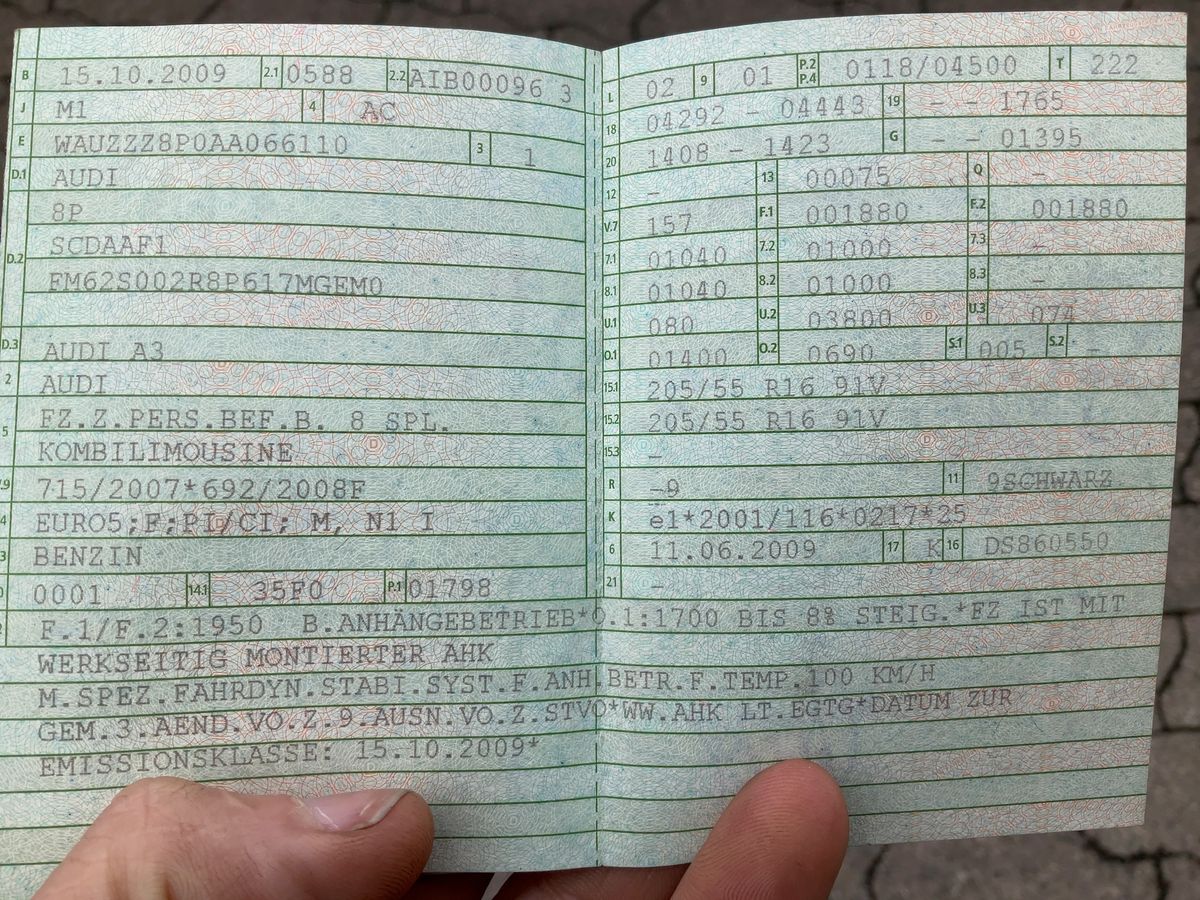 B 15.10.2009 2.1 0588 2.2 AIB00096 3
J M1 4 AC
E WAUZZZ8P0AA066110 3 1
D.1 AUDI
8P
D.2 SCDAAF1
FM62S002R8P617MGEM0
D.3 AUDI A3
2 AUDI
5 FZ.Z.PERS.BEF.B. 8 SPL.
KOMBILIMOUSINE
.9 715/2007*692/2008F
4 EURO5;F;PI/CI; M, N1 I
3 BENZIN
0001 14.1 35F0 P.1 01798
L 02 9 01 P.2 P.4 0118/04500 T 222
18 04292 - 04443 19 - - 1765
20 1408 - 1423 G - - 01395
12 - 13 00075 Q -
V.7 157 F.1 001880 F.2 001880
7.1 01040 7.2 01000 7.3 -
8.1 01040 8.2 01000 8.3 -
U.1 080 U.2 03800 U.3 074
O.1 01400 O.2 0690 S.1 005 S.2 -
15.1 205/55 R16 91V
15.2 205/55 R16 91V
15.3 -
R -9 11 9SCHWARZ
K e1*2001/116*0217*25
6 11.06.2009 17 K 16 DS860550
21 -
F.1/F.2:1950 B.ANHÄNGEBETRIEB*O.1:1700 BIS 8% STEIG.*FZ IST MIT
WERKSEITIG MONTIERTER AHK
M.SPEZ.FAHRDYN.STABI.SYST.F.ANH.BETR.F.TEMP.100 KM/H
GEM.3.AEND.VO.Z.9.AUSN.VO.Z.STVO*WW.AHK LT.EGTG*DATUM ZUR
EMISSIONSKLASSE: 15.10.2009*